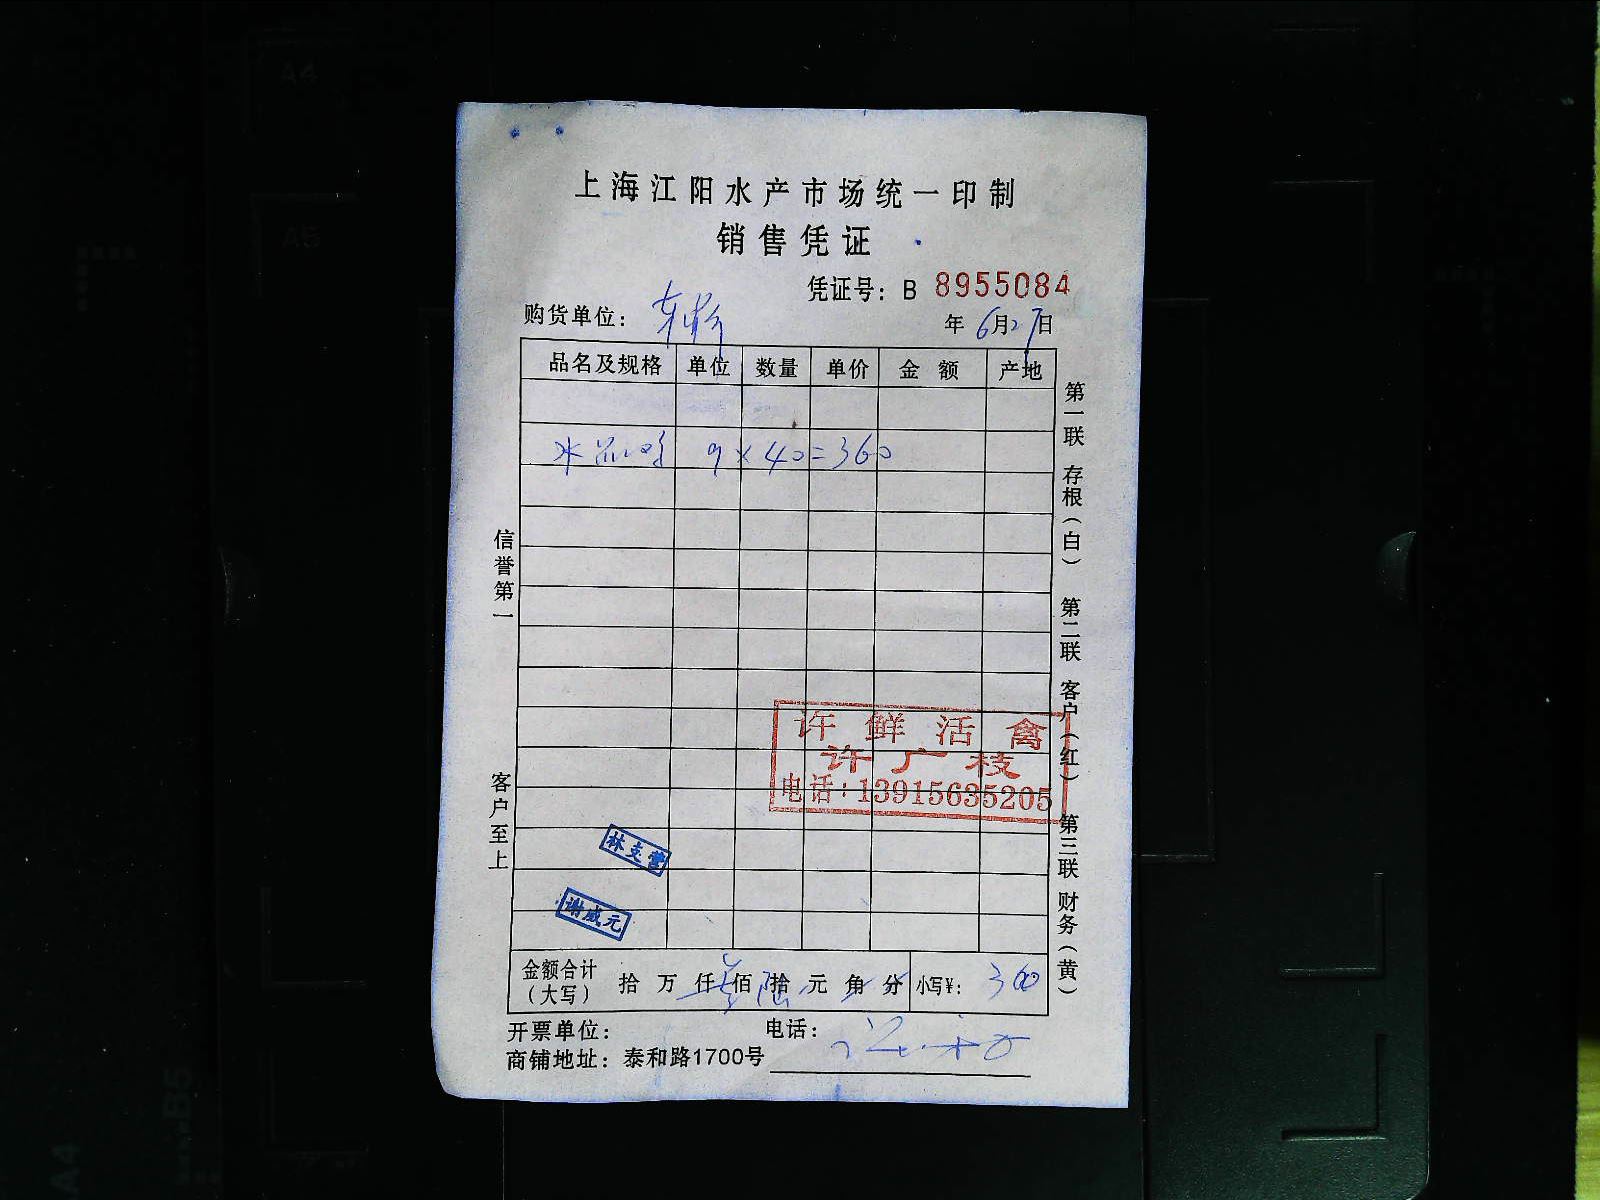 上海江阳水产市场统一印制
销售凭证
凭证号：B 8955084
购货单位：
年 6月27日
品名及规格 单位 数量 单价 金额 产地
9×40=360
信誉第一
客户至上
第一联 存根（白） 第二联 客户（红） 第三联 财务（黄）
许鲜活禽
许广枝
电话：13915635205
林支营
谢成元
金额合计（大写） 拾 万 仟 叁佰 陆拾 元 角 分 小写¥： 360
开票单位： 电话：
商铺地址：泰和路1700号
A4
A5
B5
A4